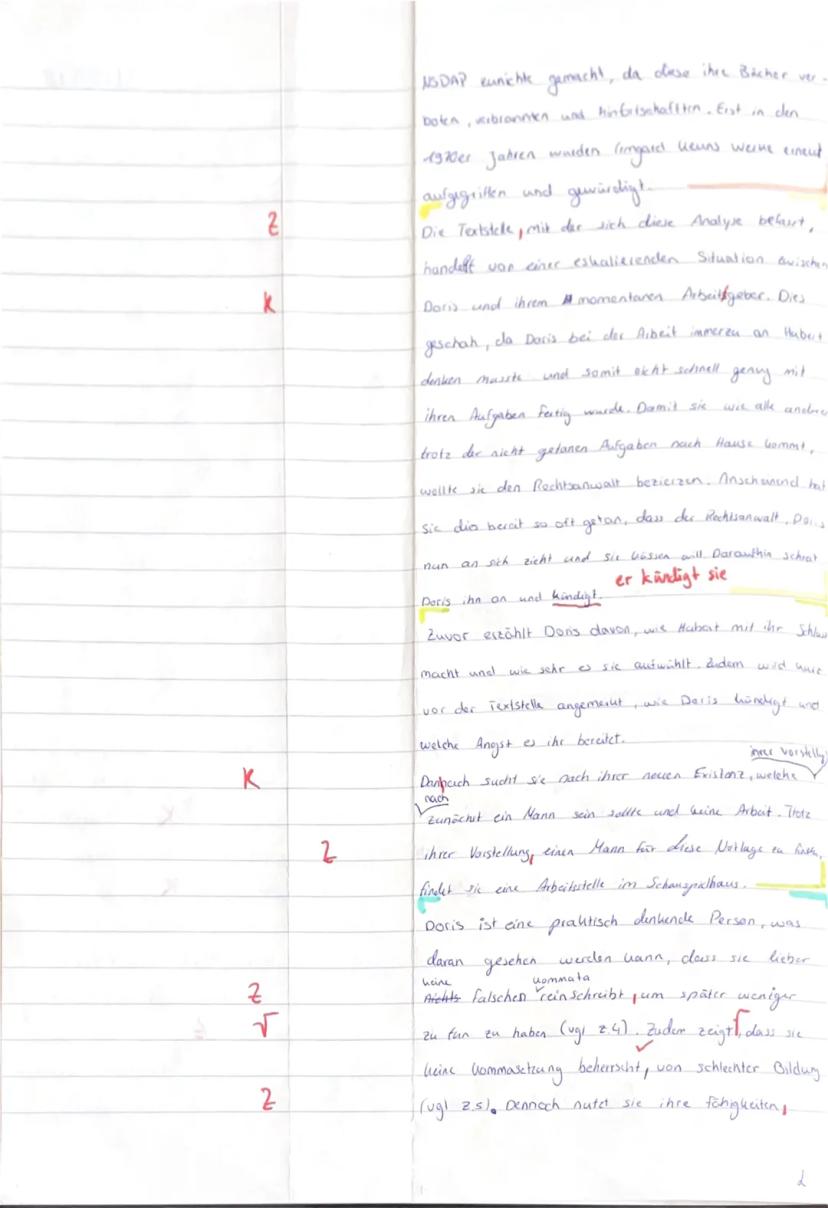 NSDAP zunichte gemacht, da diese ihre Bücher ver-
boten, verbrannten und
1970er Jahren wurden Irmgard Keuns Werke erneut
aufgegriffen und gewürdigt.
Z
Die Textstelle, mit der sich diese Analyse befasst,
handelt von einer eskalierenden Situation zwischen
K
Doris und ihrem momentanen Arbeitgeber. Dies
geschah, da Doris bei der Arbeit immerzu an Hubert
denken musste und somit nicht schnell genug mit
ihren Aufgaben fertig wurde. Damit sie wie alle andere
trotz der nicht getanen Aufgaben nach Hause kommt,
wollte sie den Rechtsanwalt bezierzen. Anscheinend hat
sie dies bereit so oft getan, dass der Rechtsanwalt, Doris
nun an sich zieht und sie küssen will. Daraufhin schreit
er kündigt sie
Doris ihn an und kündigt.
Zuvor erzählt Doris davon, wie Hubert mit ihr Schluss
macht und wie sehr es sie aufwühlt. Zudem wird kurz
vor der Textstelle angemerkt, wie Doris kündigt und
welche Angst es ihr bereitet.
ihrer Vorstellung
K
Danach sucht sie nach ihrer neuen Existenz, welche
nach
zunächst ein Mann sein sollte und keine Arbeit. Trotz
Z
ihrer Vorstellung, einen Mann für diese Notlage zu finden,
findet sie eine Arbeitsstelle im Schauspielhaus.
Doris ist eine praktisch denkende Person, was
daran gesehen werden kann, dass sie lieber
keine
Kommata
Z
Nichts falschen reinschreibt, um später weniger
√
zu tun zu haben (vgl Z.4). Zudem zeigt, dass sie
keine Kommasetzung beherrscht, von schlechter Bildung
Z
(vgl Z.5). Dennoch nutzt sie ihre Fähigkeiten,
2